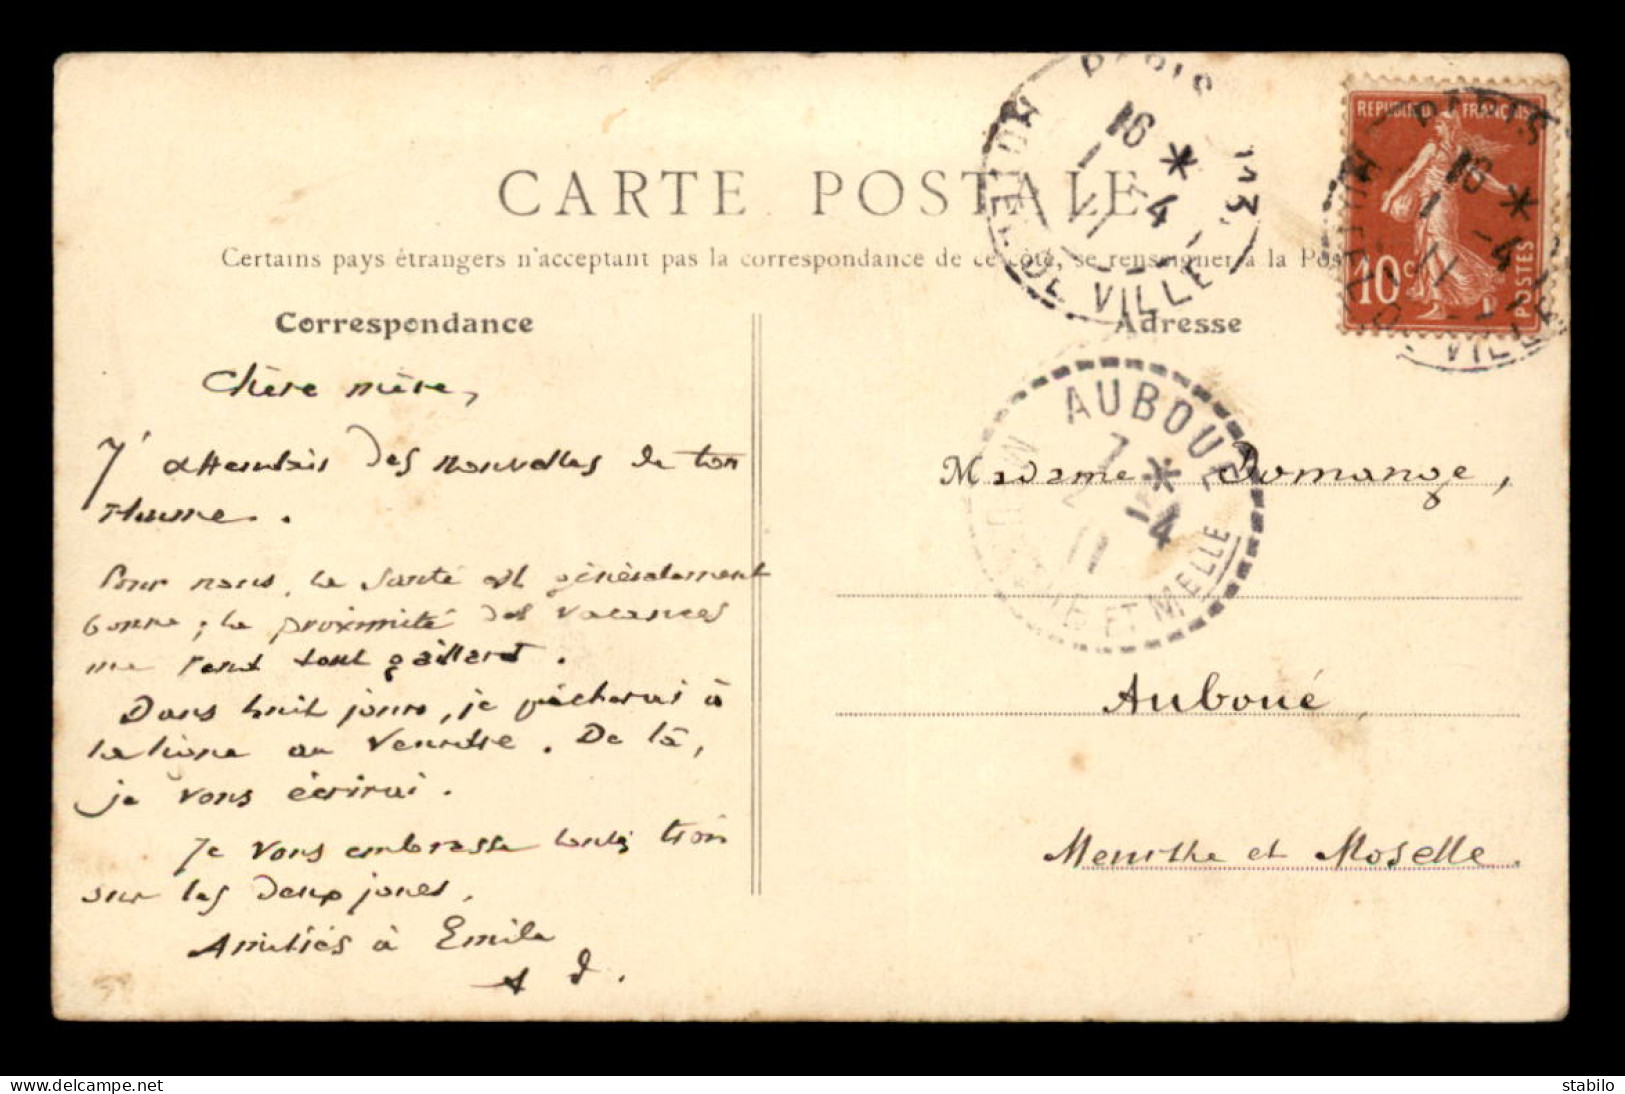 CARTE POSTALE
Certains pays étrangers n'acceptant pas la correspondance de ce côté, se renseigner à la Pos
Correspondance
Adresse
Chère mère,
J'attendais des nouvelles de ton
rhume.
Pour nous, la santé est généralement
bonne ; la proximité des vacances
me rend tout gaillard.
Dans huit jours, je pêcherai à
la ligne au Vesudre. De là,
je vous écrirai.
Je vous embrasse toutes trois
sur les deux joues.
Amitiés à Emile
A D.
Madame Domange,
Auboué
Meurthe et Moselle.
PARIS
16 *
1 - 4
11
HOTEL DE VILLE
REPUBLIQUE FRANÇAISE
10c
POSTES
PARIS
16 *
1 - 4
11
VILLE
AUBOUÉ
7 *
2 - 4
11
MEURTHE ET MOSELLE
stabilo